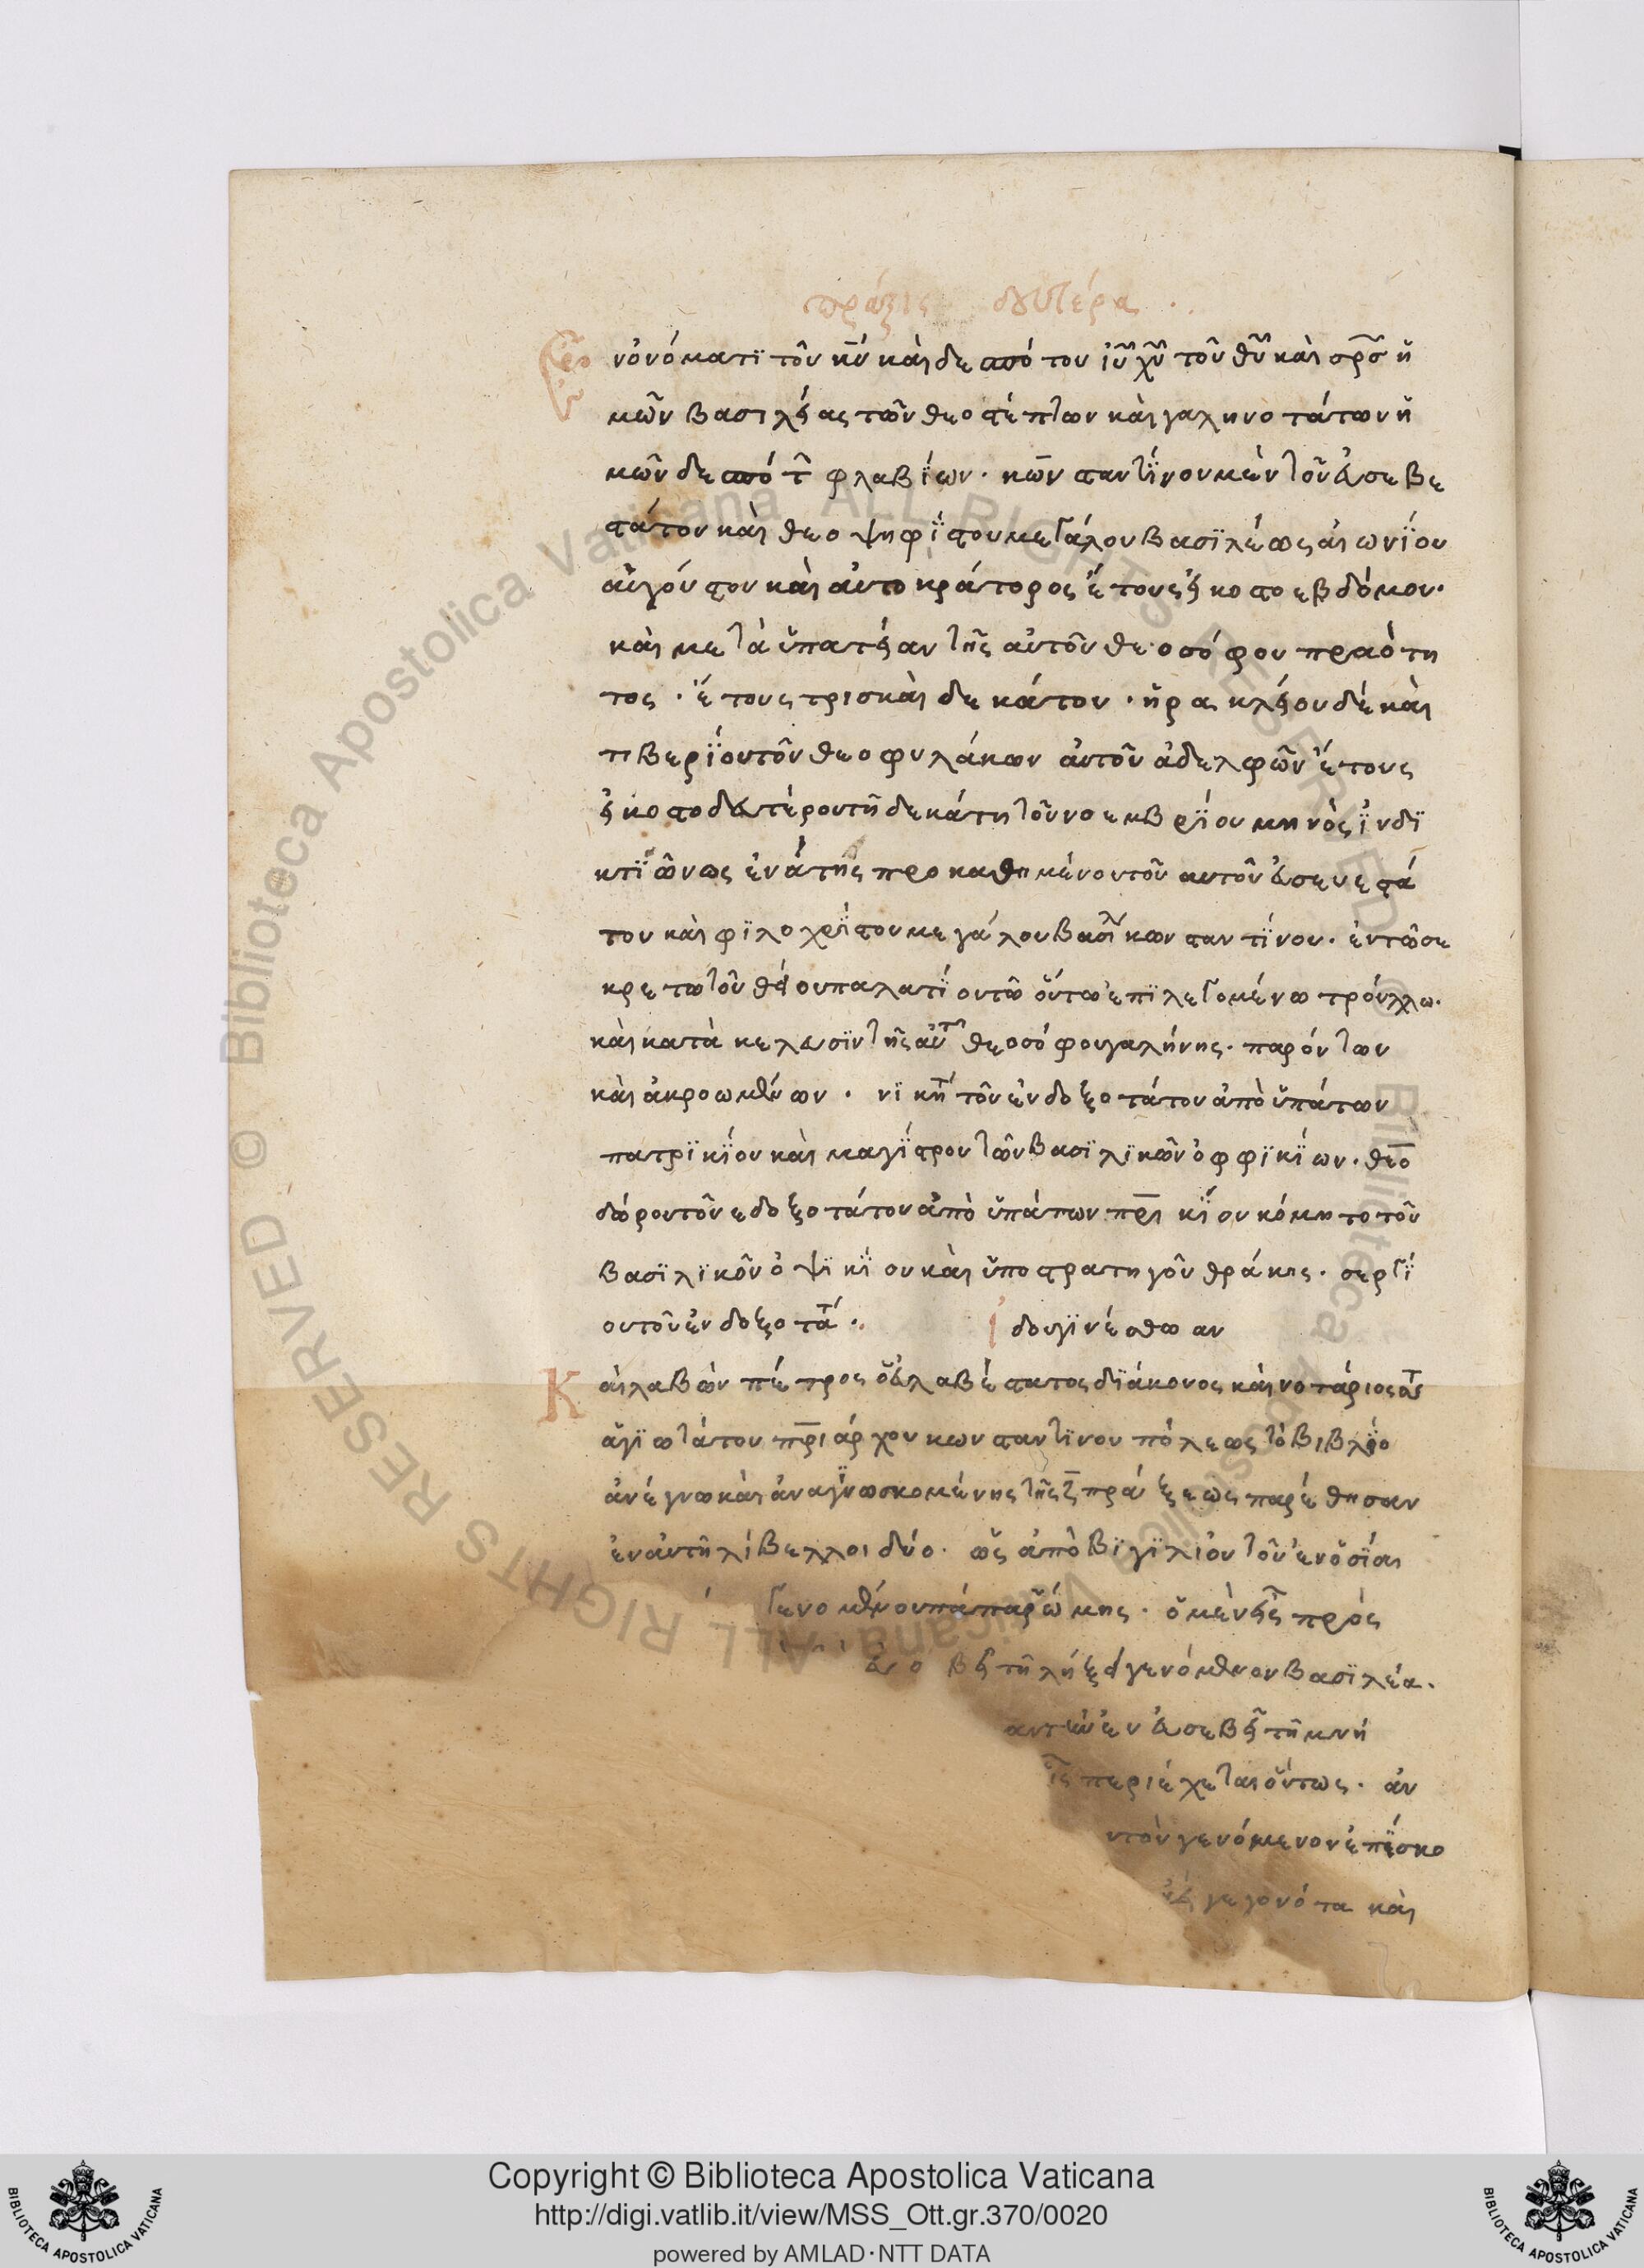 πράξις δευτέρα.
Ἐν ὀνόματϊ τοῦ κ̅υ̅ καὶ δεσπότου ἰ̅υ̅ χ̅υ̅ τοῦ θ̅υ̅ καὶ σ̅ρ̅σ̅ ἡ
μῶν βασιλείας τῶν θεοστέπτων καὶ γαληνοτάτων ἡ
μῶν δεσποτ φλαβΐων. κων σταντΐνου μὲν τοῦ εὐσεβε
στάτου καὶ θεοψηφΐστου μεγάλου βασϊλέως αἰωνΐου
αὐγούστου καὶ αὐτοκράτορος ἔτους εἰκοστοεβδόμου.
καὶ μετὰ ὑπατείαν τῆς αὐτοῦ θεοσόφου πραότη
τος. ἔτους τρισκαὶδεκάτου. ἡρακλείου δὲ καὶ
τιβερΐου τῶν θεοφυλάκων αὐτοῦ ἀδελφῶν ἔτους
εἰκοστοδευτέρου τῆ δεκάτη τοῦ νοεμβρΐου μηνὸς ἰνδϊ
κτϊῶνως ἐνάτης προκαθημένου τοῦ αυτοῦ εὐσευεστά
του καὶ φϊλοχρΐστου μεγάλου βασιλ κωνσταντΐνου. ἐν τῶ σε
κρετω τοῦ θείου παλατΐου τῶ οὕτω ἐπϊλεγομένω τρούλλω.
καὶ κατὰ κελευσϊν τῆς αὐτ θεοσόφου γαλήνης. παρόντων
καὶ ἀκροωμένων. νικητ τοῦ ἐνδοξοτάτου ἀπὸ ὑπάτων
πατρϊκΐου καὶ μαγΐστρου τῶν βασϊλϊκῶν ὀφφϊκΐων. θεο
δώρου τοῦ εδοξοτάτου ἀπὸ ὑπάπων π̅ρ̅ικΐου κόμητο τοῦ
βασϊλϊκοῦ ὀψϊκΐου καὶ ὑποστρατηγοῦ θράκης. σεργΐ
ου τοῦ ἐνδοξοτά..   ἰδου γϊνέσθω αν
Καὶ λαβὼν πέτρος ὁ εὐλαβέστατος δϊάκονος καὶ νοτάριος τ
ἁγϊωτάτου π̅ρ̅ιάρχου κωνσταντϊνουπόλεως τὸ βιβλΐο
ἀνέγνω καὶ ἀναγϊνωσκομένης τῆς ζ̅ πράξεως παρέθησαν
ἐν αὐτῆ λίβελλοι δύο. ὡς ἀπὸ βϊγϊλιου τοῦ ἐν ὁσϊαι
γενομένου πάπα ῥώμης. ὁ μὲν εἷς πρὸς
εὐσεβεῖ τῆ λήξει γενόμενον βασϊλέα.
αυτ ἐν εὐσεβεῖ τῆ μνή
ις περιέχεται οὕτως. ἀν
ντον γενόμενον ἐπΐσκο
εις γεγονότα καὶ
Copyright © Biblioteca Apostolica Vaticana
http://digi.vatlib.it/view/MSS_Ott.gr.370/0020
powered by AMLAD·NTT DATA